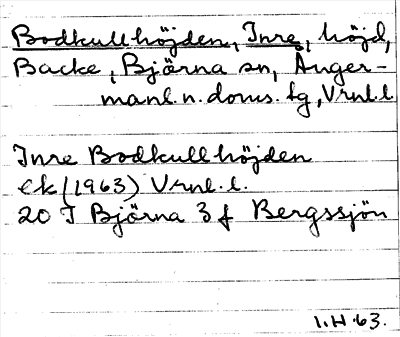 Bodkullhöjden, Inre, höjd,
Backe, Björna sn, Ånger-
manl. n. doms. tg, Vrnl.l.
Inre Bodkullhöjden
ek (1963) Vrnl. l.
20 I Björna 3 f Bergssjön
I.H.63.